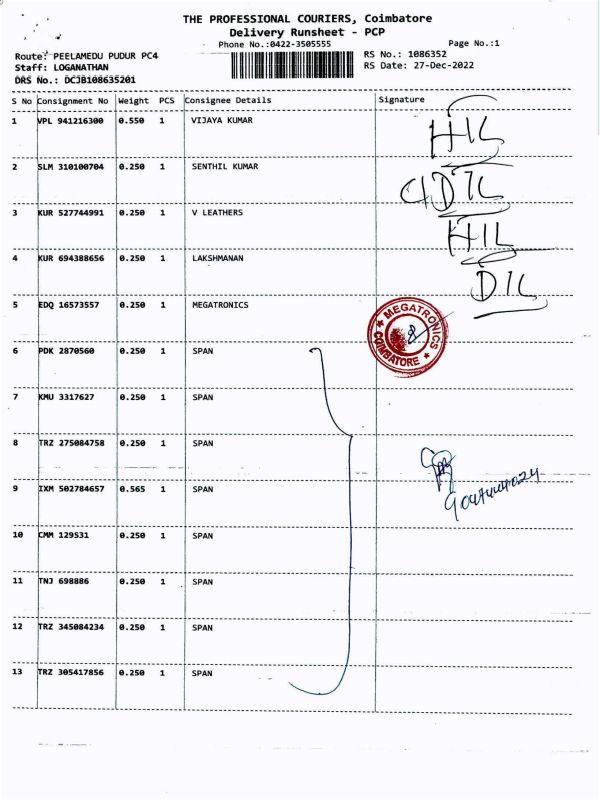 THE PROFESSIONAL COURIERS, Coimbatore
Delivery Runsheet - PCP
Phone No.:0422-3505555 Page No.:1
Route: PEELAMEDU PUDUR PC4 RS No.: 1086352
Staff: LOGANATHAN RS Date: 27-Dec-2022
DRS No.: DCJB108635201
S No Consignment No Weight PCS Consignee Details Signature
1 VPL 941216300 0.550 1 VIJAYA KUMAR
2 SLM 310100704 0.250 1 SENTHIL KUMAR
3 KUR 527744991 0.250 1 V LEATHERS
4 KUR 694388656 0.250 1 LAKSHMANAN
5 EDQ 16573557 0.250 1 MEGATRONICS
MEGATRONICS
COIMBATORE
6 PDK 2870560 0.250 1 SPAN
7 KMU 3317627 0.250 1 SPAN
8 TRZ 275084758 0.250 1 SPAN
9 IXM 502784657 0.565 1 SPAN
10 CMM 129531 0.250 1 SPAN
11 TNJ 698886 0.250 1 SPAN
12 TRZ 345084234 0.250 1 SPAN
13 TRZ 305417856 0.250 1 SPAN